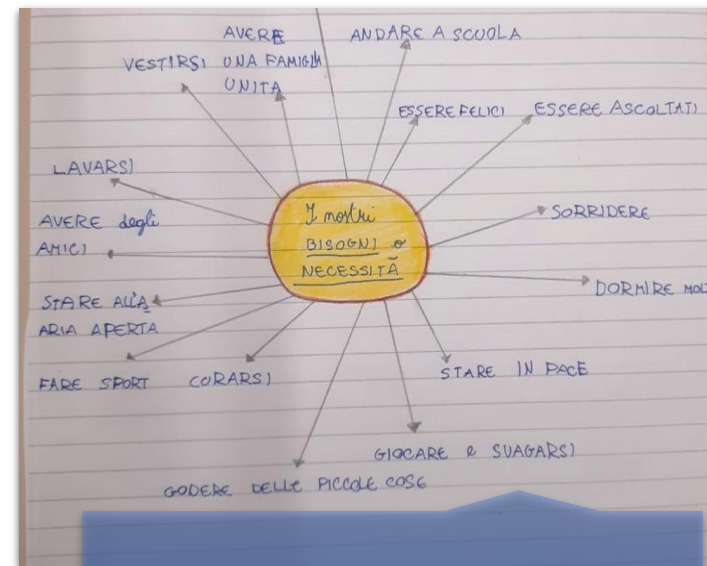 I nostri
BISOGNI o
NECESSITÀ
AVERE
UNA FAMIGLIA
UNITA
ANDARE A SCUOLA
ESSERE FELICI
ESSERE ASCOLTATI
SORRIDERE
DORMIRE MOL
STARE IN PACE
GIOCARE e SVAGARSI
GODERE DELLE PICCOLE COSE
CURARSI
FARE SPORT
STARE ALL'A
ARIA APERTA
AVERE degli
AMICI
LAVARSI
VESTIRSI